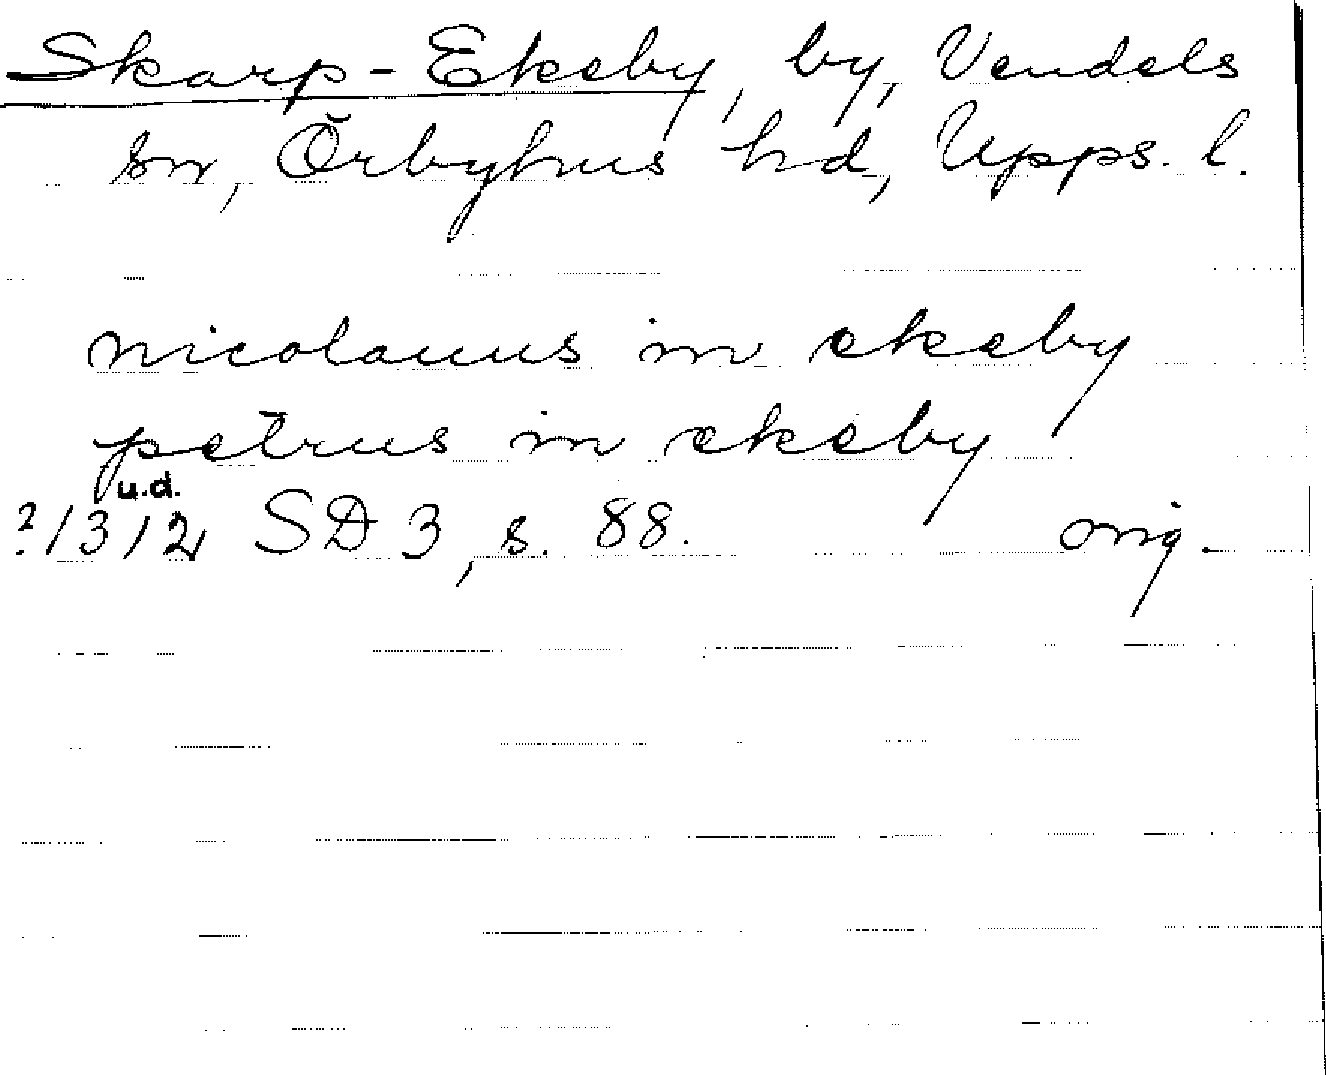 Skarp-Ekeby, by, Vendels
sn, Örbyhus hd, Upps. l.
nicolaus in ekeby
petrus in ekeby
u.d.
?1312 SD 3, s. 88. orig.